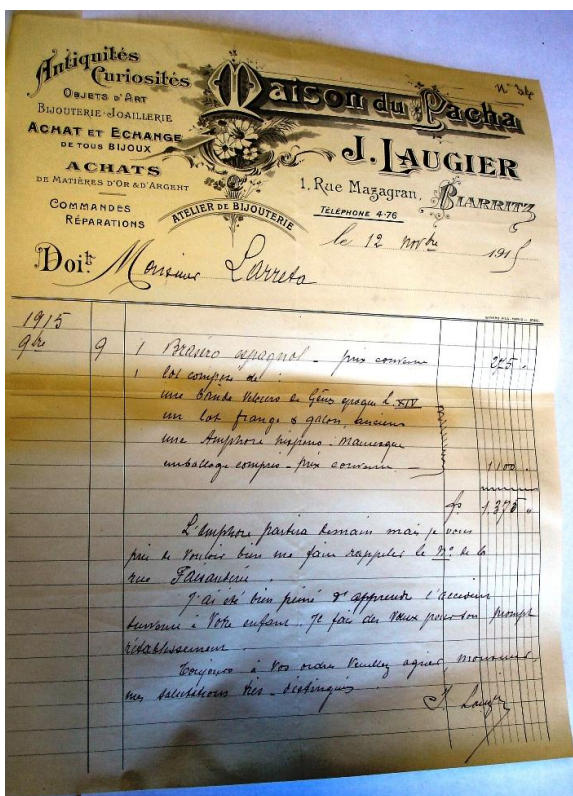 Antiquités
Curiosités
OBJETS D'ART
BIJOUTERIE-JOAILLERIE
ACHAT ET ECHANGE
DE TOUS BIJOUX
ACHATS
DE MATIÈRES D'OR & D'ARGENT
COMMANDES
RÉPARATIONS
Maison du Pacha
J. LAUGIER
1, Rue Mazagran, BIARRITZ
TÉLÉPHONE 4-76
ATELIER DE BIJOUTERIE
N°
le 12 novbre 1915
Doit Monsieur Larreta
1915
9bre 9 1 Brasero espagnol - prix convenu 275 "
1 lot compose de :
une bande velours de Gênes epoque L. XIV
un lot frange & galon anciens
une Amphore hispano-mauresque
emballage compris - prix convenu 1100 "
fs 1.375 "
L'amphore partira demain mais je vous
prie de vouloir bien me faire rappeler le No de la
rue Faisanderie.
J'ai été bien peiné d'apprendre l'accident
survenu à Votre enfant. Je fais des vœux pour son prompt
rétablissement.
Toujours à vos ordres Veuillez agréer monsieur
mes salutations très-distinguées
J. Laugier